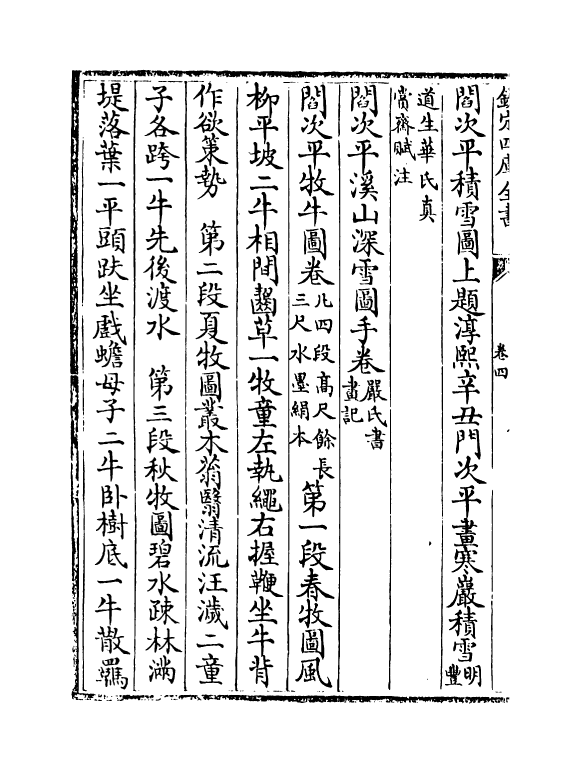 欽定四庫全書
卷四
閻次平積雪圖上題淳熙辛丑門次平畫寒巖積雪明豐
道生華氏真賞齋賦注
閻次平溪山深雪圖手卷嚴氏書畫記
閻次平牧牛圖卷凡四段高尺餘長三尺水墨絹本第一段春牧圖風
柳平坡二牛相間齧草一牧童左執繩右握鞭坐牛背
作欲策勢　第二段夏牧圖叢木蓊翳清流汪濊二童
子各跨一牛先後渡水　第三段秋牧圖碧水疎林滿
堤落葉一平頭趺坐戲蟾母子二牛卧樹底一牛散羈